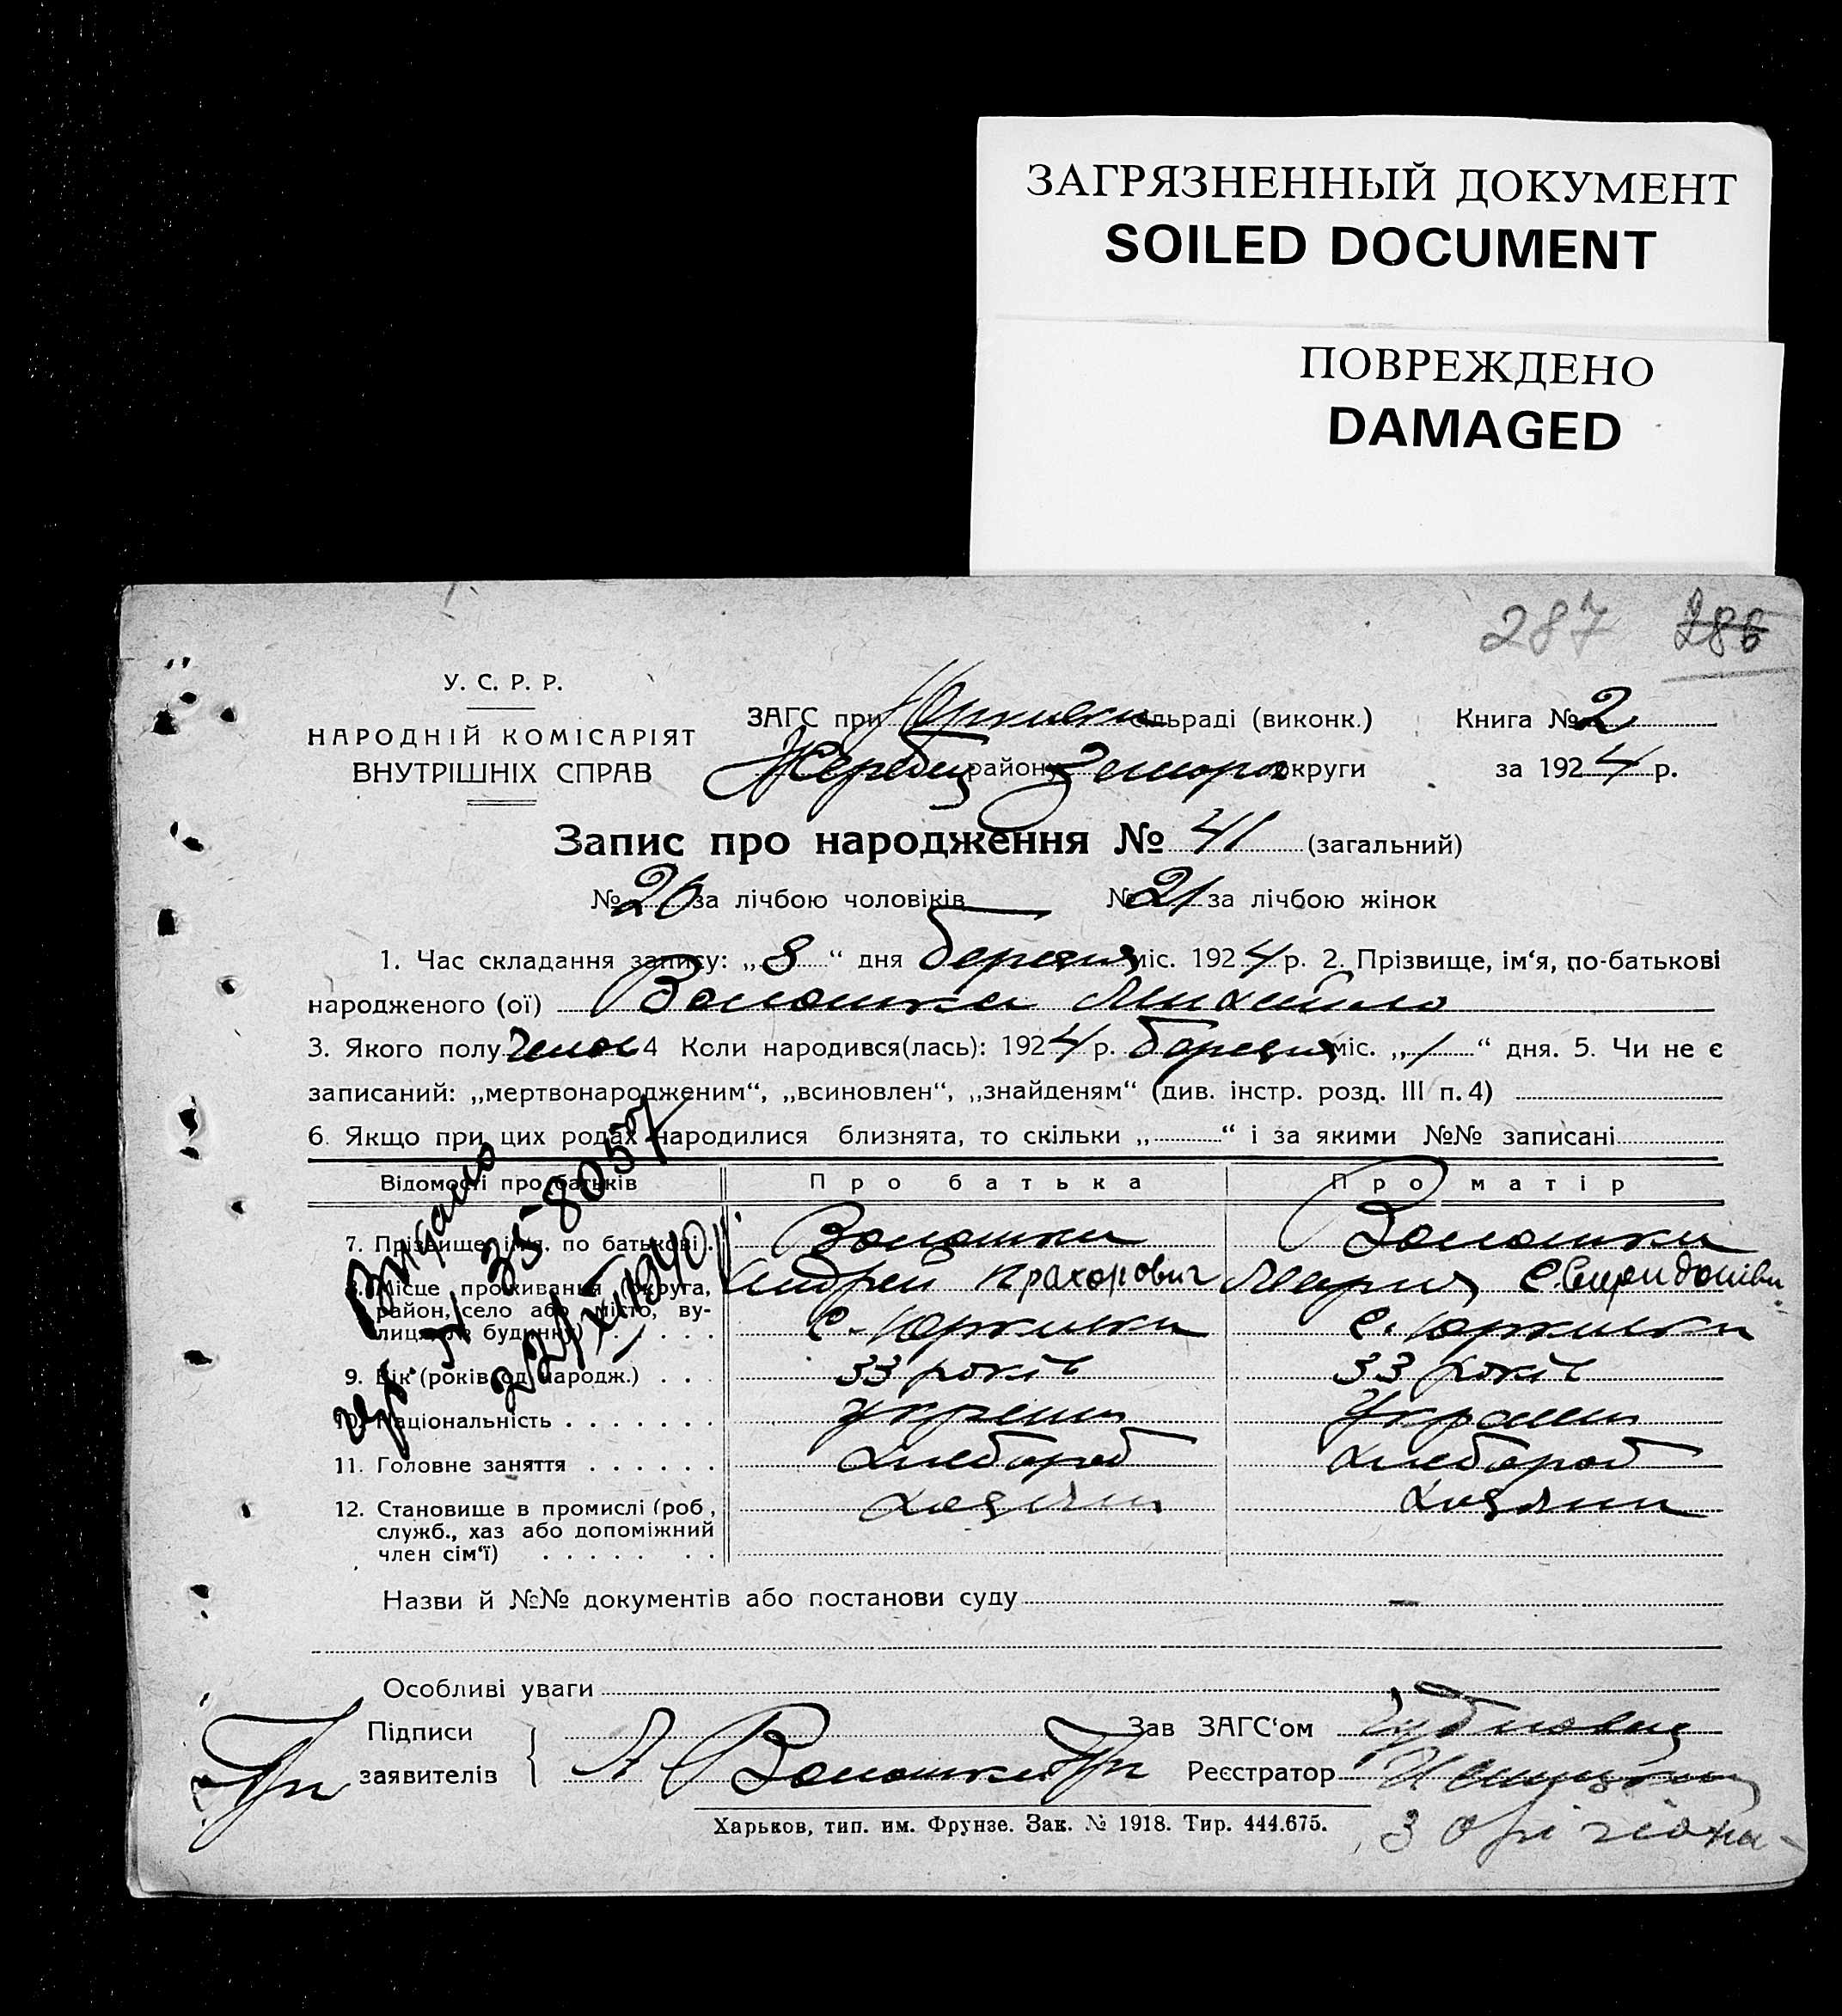 ЗАГРЯЗНЕННЫЙ ДОКУМЕНТ
SOILED DOCUMENT
ПОВРЕЖДЕНО
DAMAGED
287 286
У. С. Р. Р.
НАРОДНІЙ КОМІСАРІЯТ
ВНУТРІШНІХ СПРАВ
ЗАГС при Юрківски сільраді (виконк.) Книга № 2
Жеребец району Запорож округи за 1924 р.
Запис про народження № 41 (загальний)
№ 20 за лічбою чоловіків № 21 за лічбою жінок
1. Час складання запису: „8“ дня березня міс. 1924 р. 2. Прізвище, ім‘я, по-батькові
народженого (ої) Волошки Михайло
3. Якого полу 4 Коли народився(лась): 1924 р. березня міс. „1“ дня. 5. Чи не є
записаний: „мертвонародженим“, „всиновлен“, „знайденям“ (див. інстр. розд. III п. 4)
6. Якщо при цих родах народилися близнята, то скільки „ “ і за якими №№ записані
Відомості про батьків Про батька Про матір
7. Прізвище, ім‘я, по батькові Волошки Волошки
Андрей Прахорович Мария Свиридонівн
8. Місце проживання (округа,
район, село або місто, ву-
лиця № будинку) с. Юркивки с. Юркивки
9. Вік (років од народж.) 33 років 33 років
10. Національність
11. Головне заняття хлебороб хлебороб
12. Становище в промислі (роб,
служб., хаз або допоміжний
член сім‘ї) хозяин хозяин
Видано
35-8057
Назви й №№ документів або постанови суду —
Особливі уваги
Підписи
заявителів А Волошки
Зав ЗАГС‘ом
Реєстратор
Харьков, тип. им. Фрунзе. Зак. № 1918. Тир. 444.675.